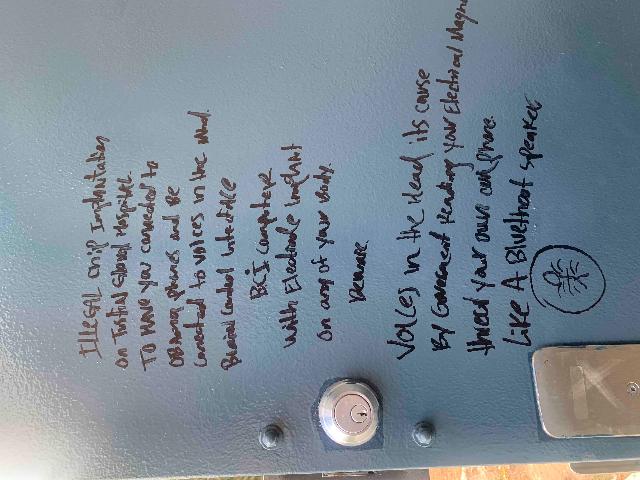 Illegal chip Implantation
on Hospital
To Have you connected to
phones and Be
connected to voices in the Mind.
Brain Control interface
BCI computer
with Electrode Implant
on any of your Body.
Beware.
Voices in the Head its cause
By Government Reading your Electrical Magne
threw your own cell phone.
Like A Bluethoot speaker
K